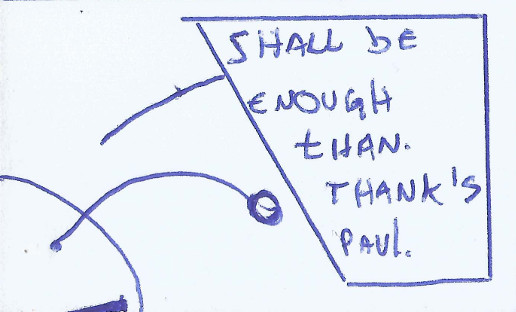 SHALL bE
ENOUGH
tHAN.
THANK'S
PAUL.